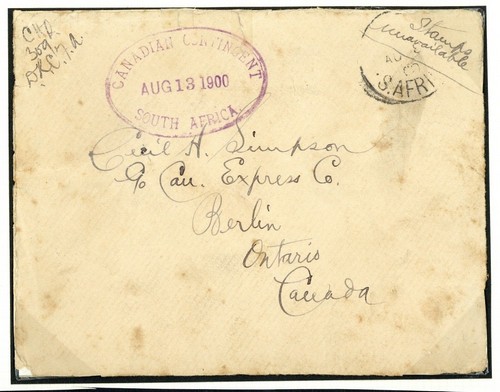 309
CANADIAN CONTINGENT
AUG 13 1900
SOUTH AFRICA
Stamps
unavailable
S. AFRI
Cecil H. Simpson
c/o Can. Express Co.
Berlin
Ontario
Canada